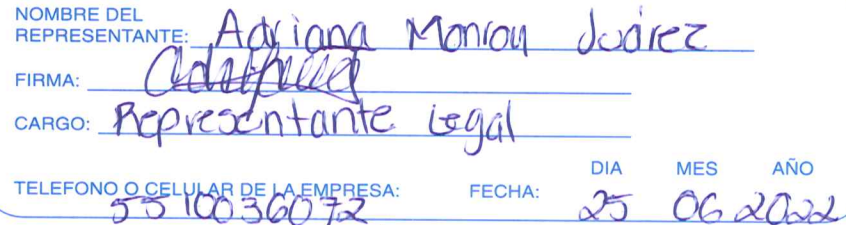 NOMBRE DEL
REPRESENTANTE: Adriana Monroy Juárez
FIRMA:
CARGO: Representante Legal
DIA MES AÑO
TELEFONO O CELULAR DE LA EMPRESA: 5510036072 FECHA: 25 06 2022